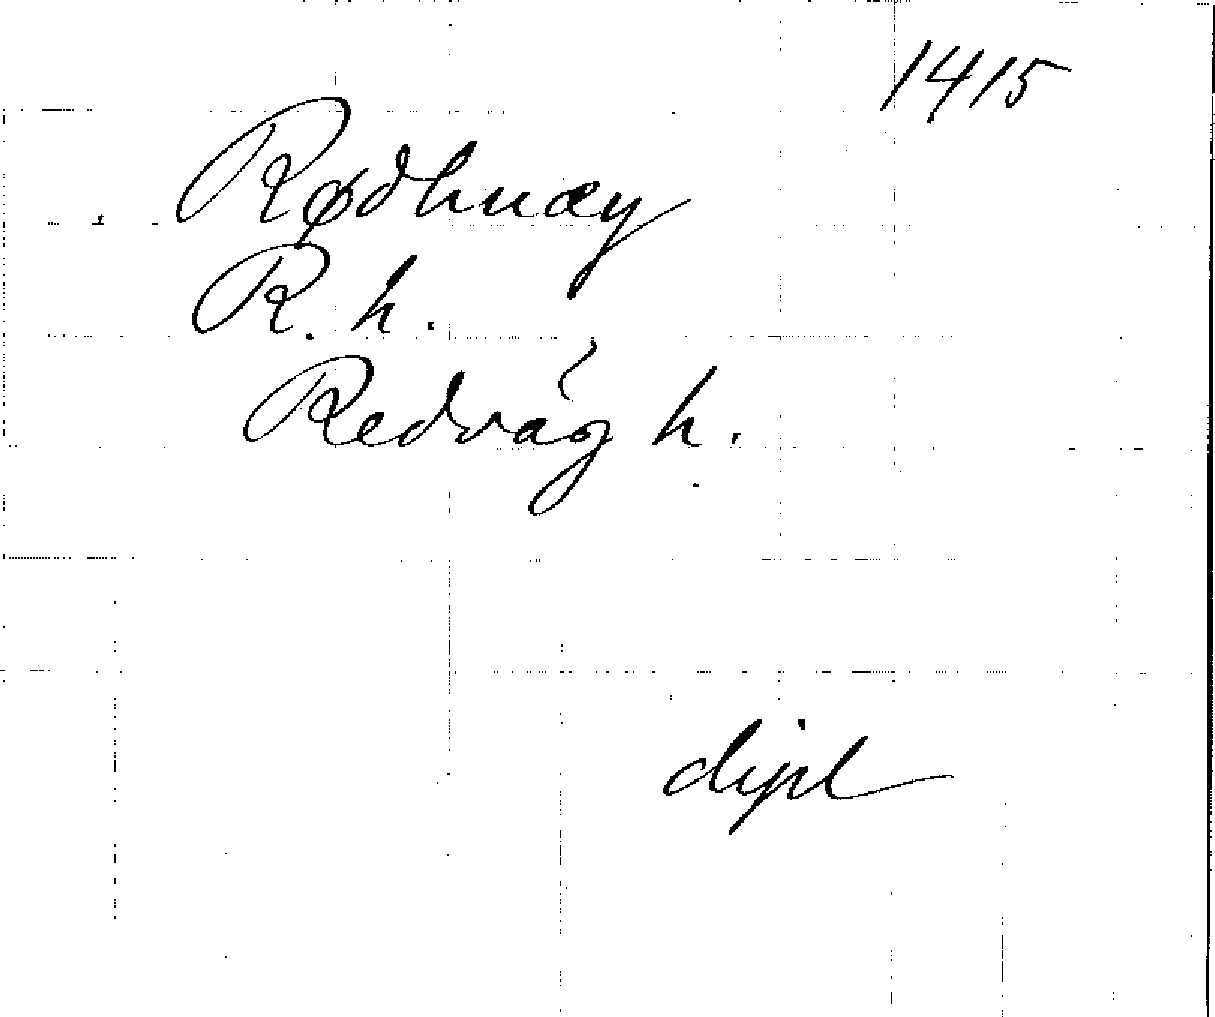 1415
Rødhuæy
R. h.
Redvåg h.
dipl